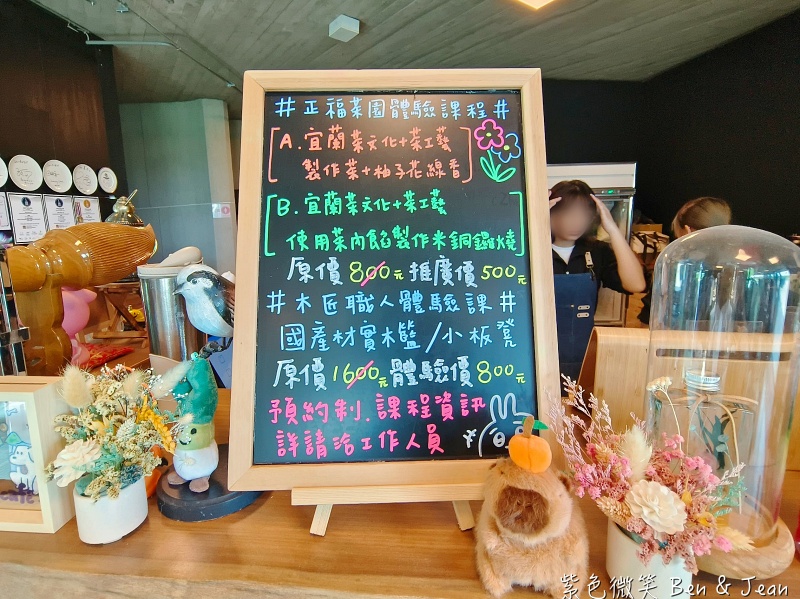 #正福茶園體驗課程#
A.宜蘭茶文化+茶工藝
製作茶+柚子花線香
B.宜蘭茶文化+茶工藝
使用茶內餡製作米銅鑼燒
原價800元 推廣價500元
#木匠職人體驗課#
國產材實木籃/小板凳
原價1600元 體驗價800元
預約制.課程資訊
詳請洽工作人員
紫色微笑 Ben & Jean